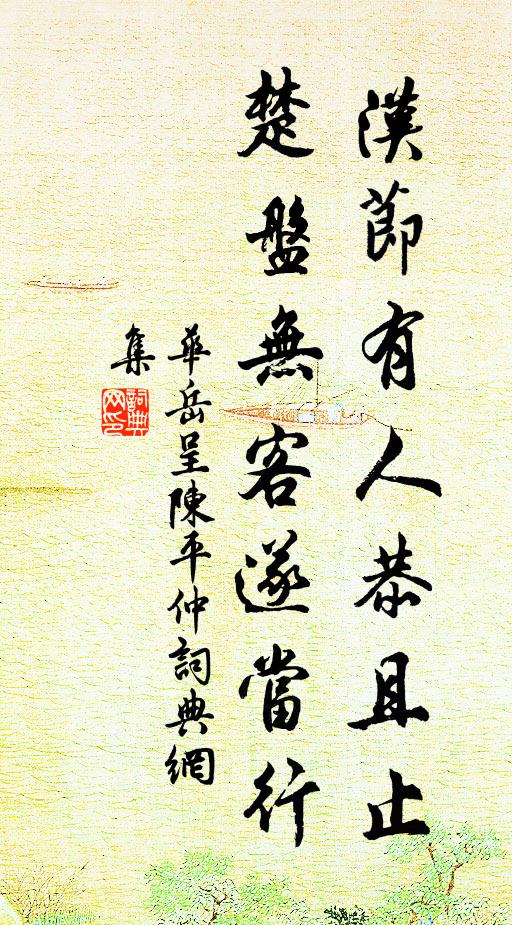 漢節有人恭且止
楚盤無客遂當行
華岳呈陳平仲詞典網
集
詞典網印